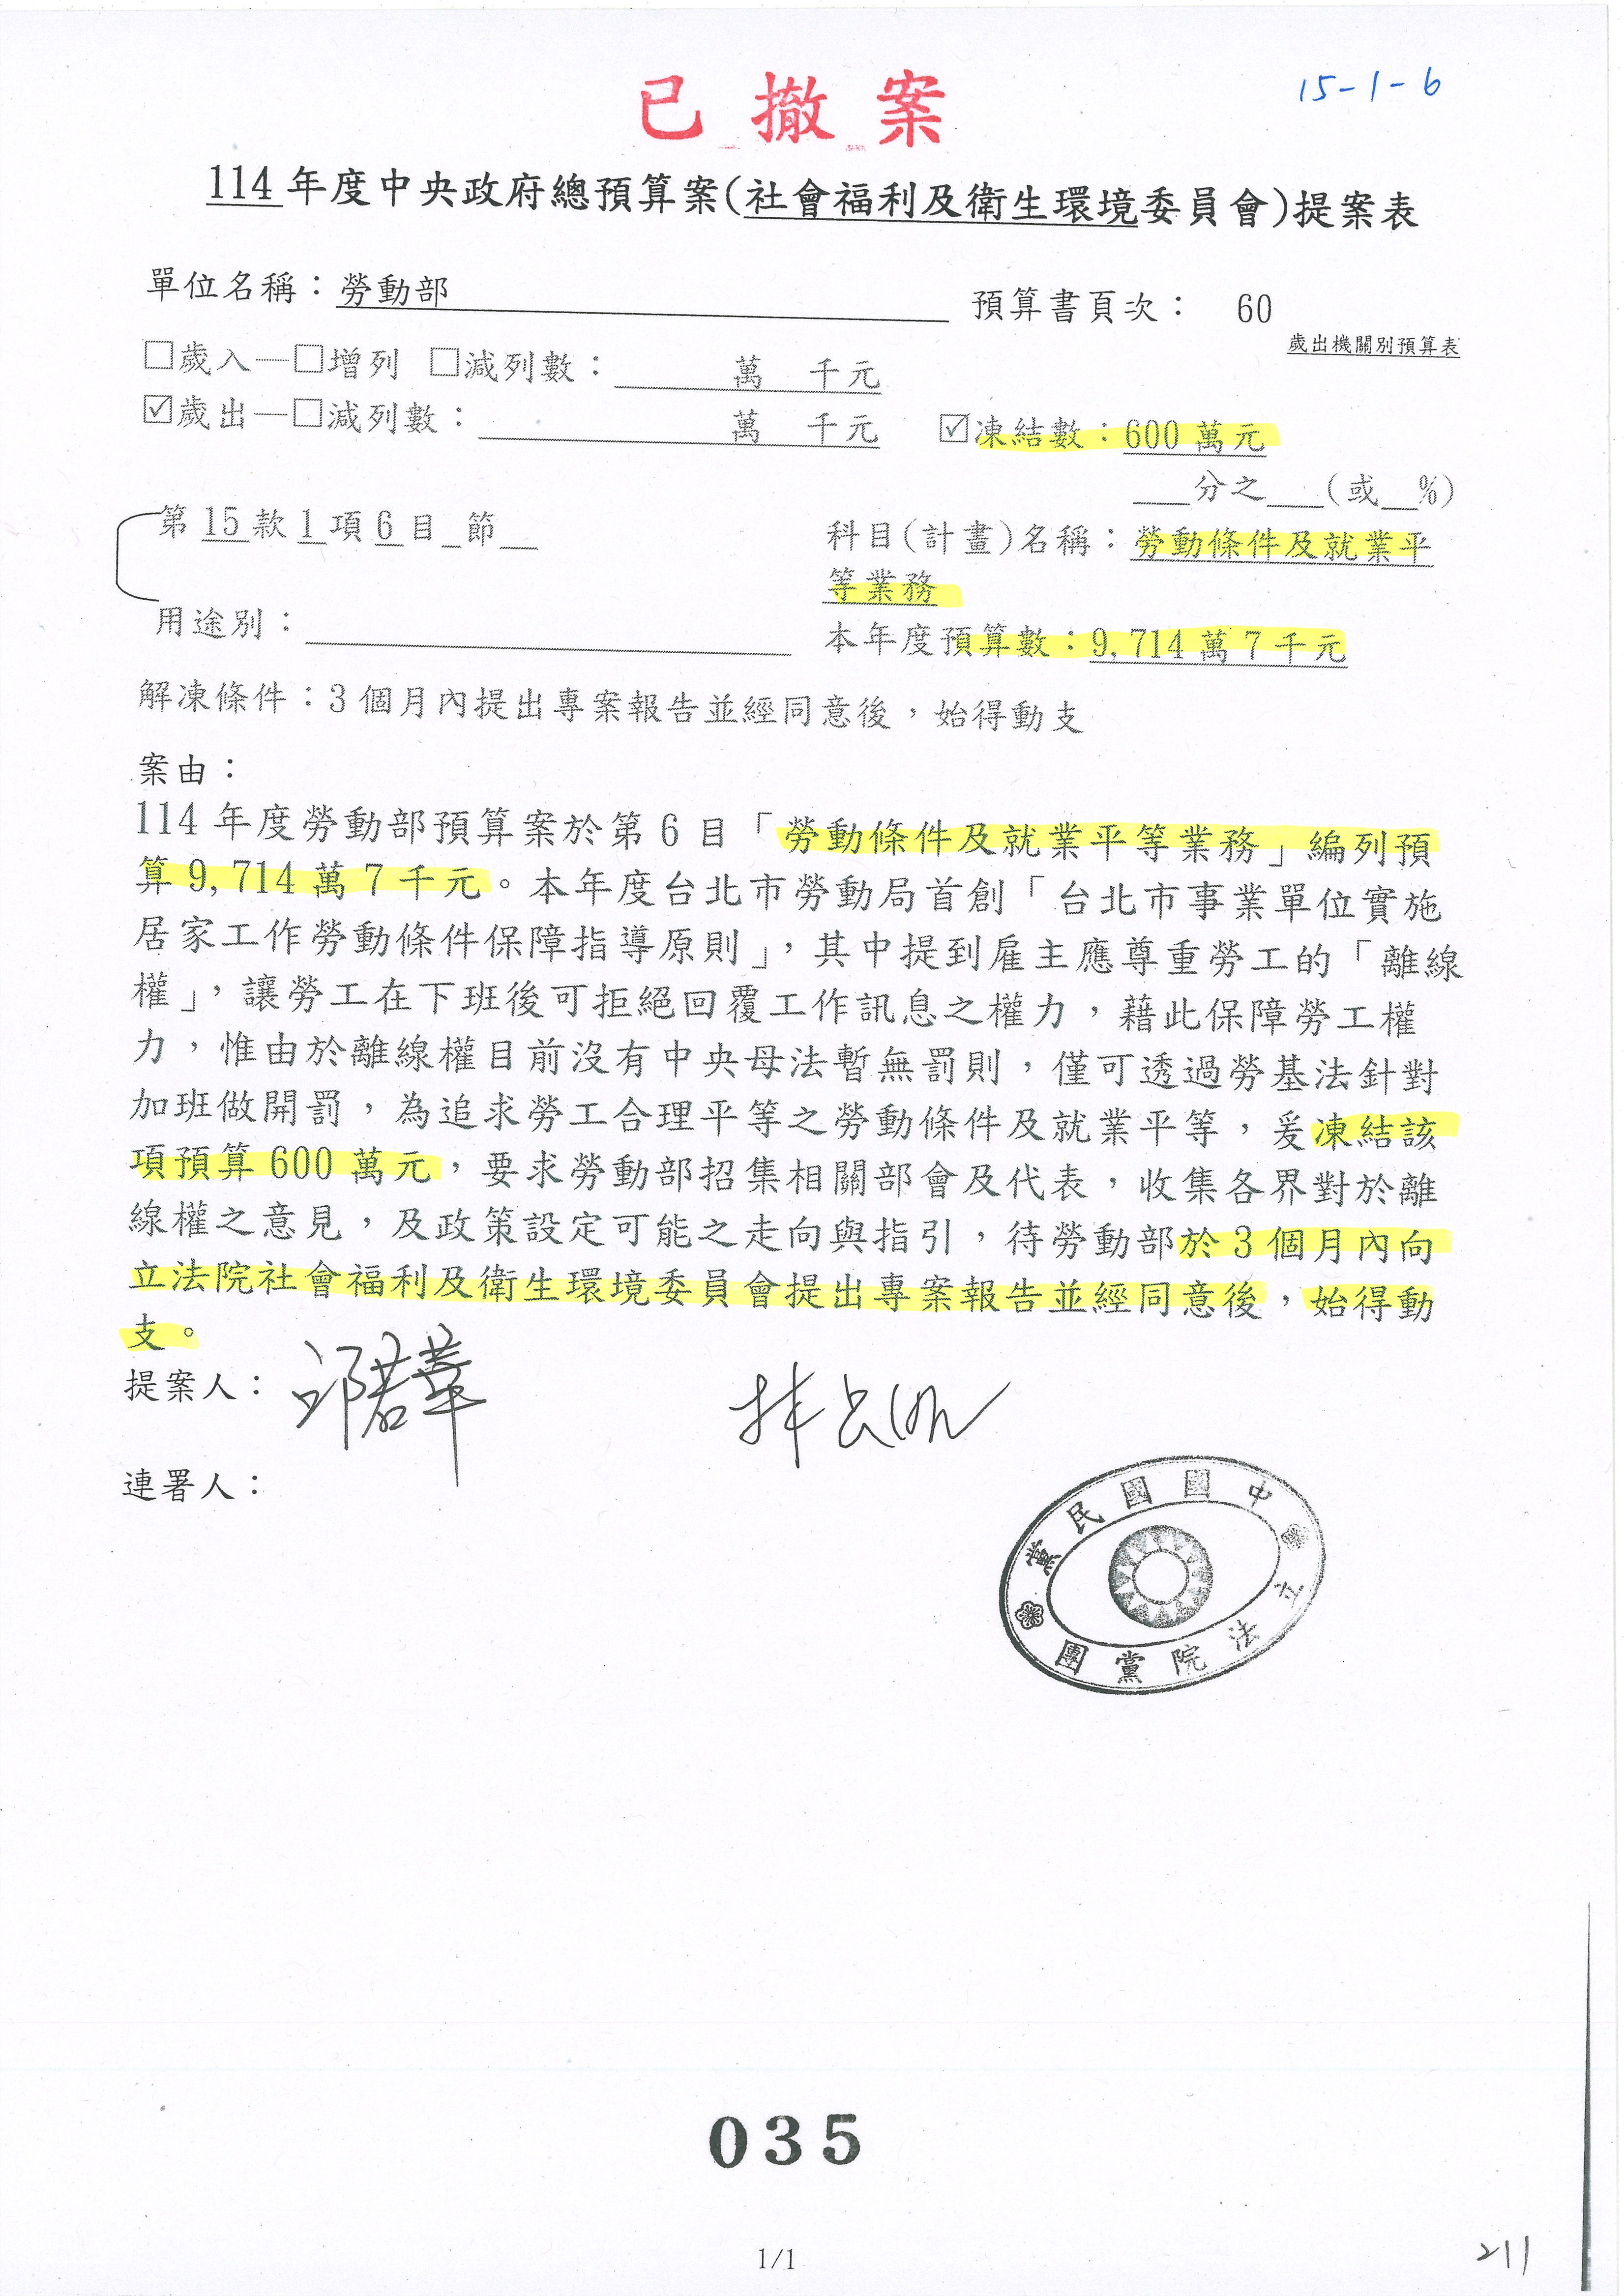 15-1-6
已撤案
114年度中央政府總預算案(社會福利及衛生環境委員會)提案表
單位名稱：勞動部
預算書頁次： 60
歲出機關別預算表
□歲入—□增列 □減列數： 萬 千元
☑歲出—□減列數： 萬 千元 ☑凍結數：600萬元
___分之___(或__%)
第15款1項6目_節__
科目(計畫)名稱：勞動條件及就業平
等業務
用途別：
本年度預算數：9,714萬7千元
解凍條件：3個月內提出專案報告並經同意後，始得動支
案由：
114年度勞動部預算案於第6目「勞動條件及就業平等業務」編列預
算9,714萬7千元。本年度台北市勞動局首創「台北市事業單位實施
居家工作勞動條件保障指導原則」，其中提到雇主應尊重勞工的「離線
權」，讓勞工在下班後可拒絕回覆工作訊息之權力，藉此保障勞工權
力，惟由於離線權目前沒有中央母法暫無罰則，僅可透過勞基法針對
加班做開罰，為追求勞工合理平等之勞動條件及就業平等，爰凍結該
項預算600萬元，要求勞動部招集相關部會及代表，收集各界對於離
線權之意見，及政策設定可能之走向與指引，待勞動部於3個月內向
立法院社會福利及衛生環境委員會提出專案報告並經同意後，始得動
支。
提案人：邱若華
連署人：
中國國民黨
立法院黨團
035
1/1
211